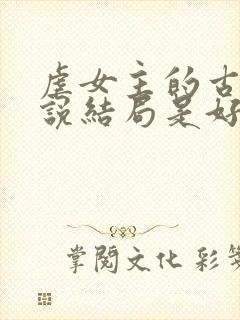 虐女主的古
說結局是好
掌閱文化 彩